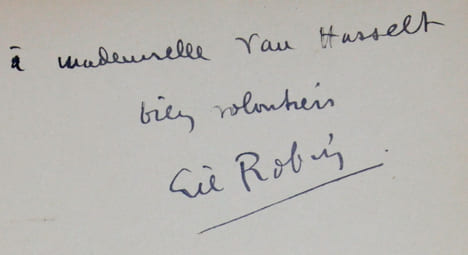 à mademoiselle Van Hasselt
bien volontiers
Gil Robin